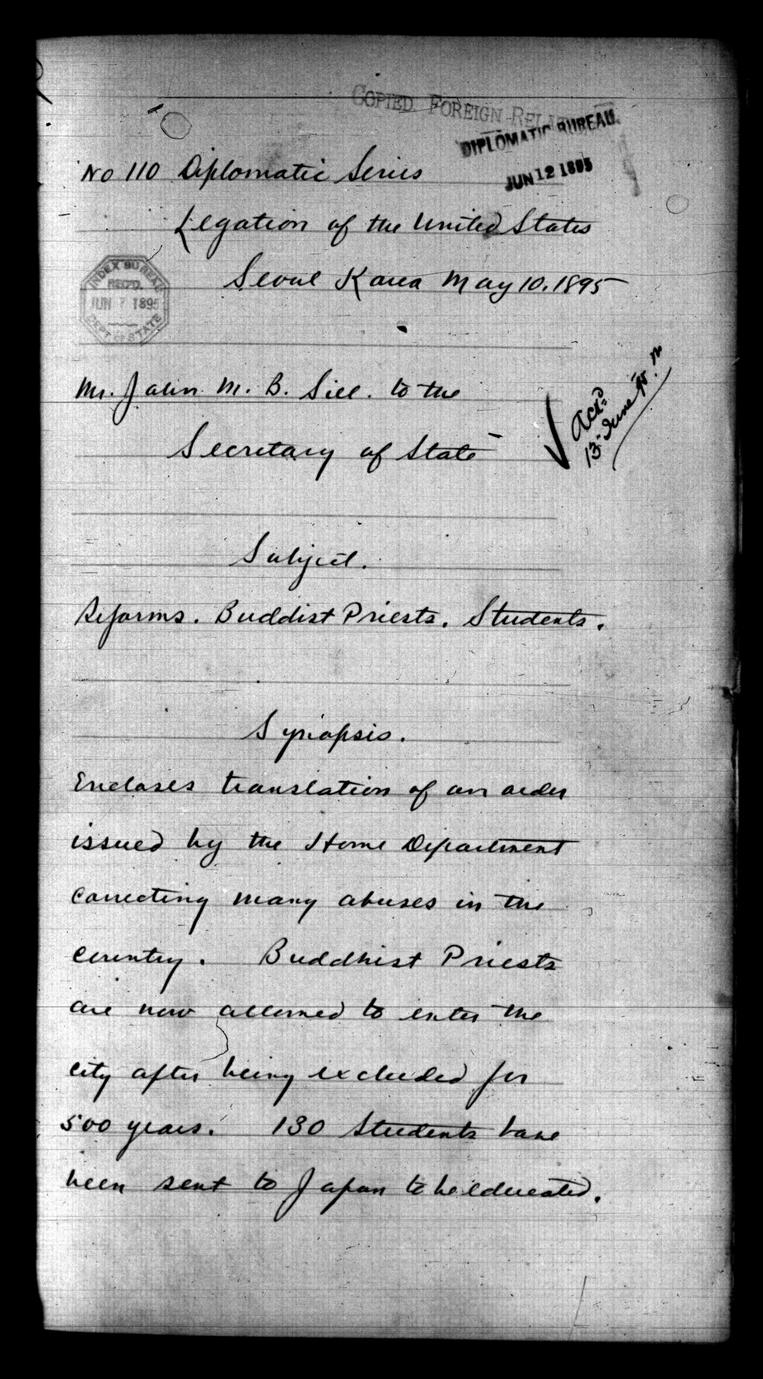 COPIED FOREIGN RELA
DIPLOMATIC BUREAU.
JUN 12 1895
No 110 Diplomatic Series
Legation of the United States
Seoul Korea May 10, 1895
INDEX BUREAU
REC'D.
JUN 7 1895
DEPT OF STATE
Mr. John M. B. Sill. to the
Secretary of State
Ack'd
13 June
Subject.
Reforms. Buddist Priests. Students.
Synopsis.
Encloses translation of an order
issued by the Home Department
correcting many abuses in the
country. Buddhist Priests
are now allowed to enter the
city after being excluded for
500 years. 130 Students have
been sent to Japan to be educated.